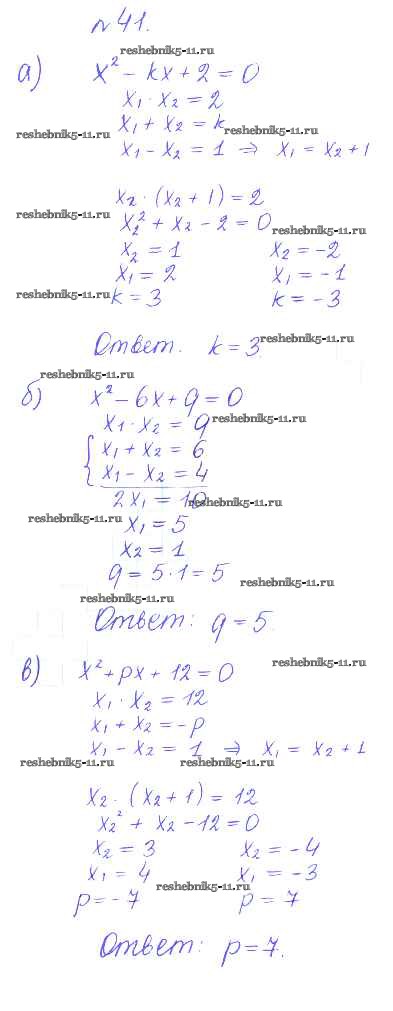 № 41.
reshebnik5-11.ru
а) x² - kx + 2 = 0
x₁ · x₂ = 2
reshebnik5-11.ru x₁ + x₂ = k reshebnik5-11.ru
x₁ - x₂ = 1 ⇒ x₁ = x₂ + 1
x₂ · (x₂ + 1) = 2
reshebnik5-11.ru
x₂² + x₂ - 2 = 0 reshebnik5-11.ru
x₂ = 1 x₂ = -2
x₁ = 2 x₁ = -1
reshebnik5-11.ru k = 3 k = -3
Ответ. k = 3 reshebnik5-11.ru
reshebnik5-11.ru
б) x² - 6x + q = 0
x₁ · x₂ = q reshebnik5-11.ru
{ x₁ + x₂ = 6
x₁ - x₂ = 4
2x₁ = 10 reshebnik5-11.ru
reshebnik5-11.ru x₁ = 5
x₂ = 1
q = 5 · 1 = 5 reshebnik5-11.ru
reshebnik5-11.ru
Ответ: q = 5.
в) x² + px + 12 = 0 reshebnik5-11.ru
x₁ · x₂ = 12
x₁ + x₂ = -p
x₁ - x₂ = 1 ⇒ x₁ = x₂ + 1
reshebnik5-11.ru reshebnik5-11.ru
x₂ · (x₂ + 1) = 12
x₂² + x₂ - 12 = 0
x₂ = 3 x₂ = -4
x₁ = 4 x₁ = -3
reshebnik5-11.ru
p = -7 p = 7
Ответ: p = 7.